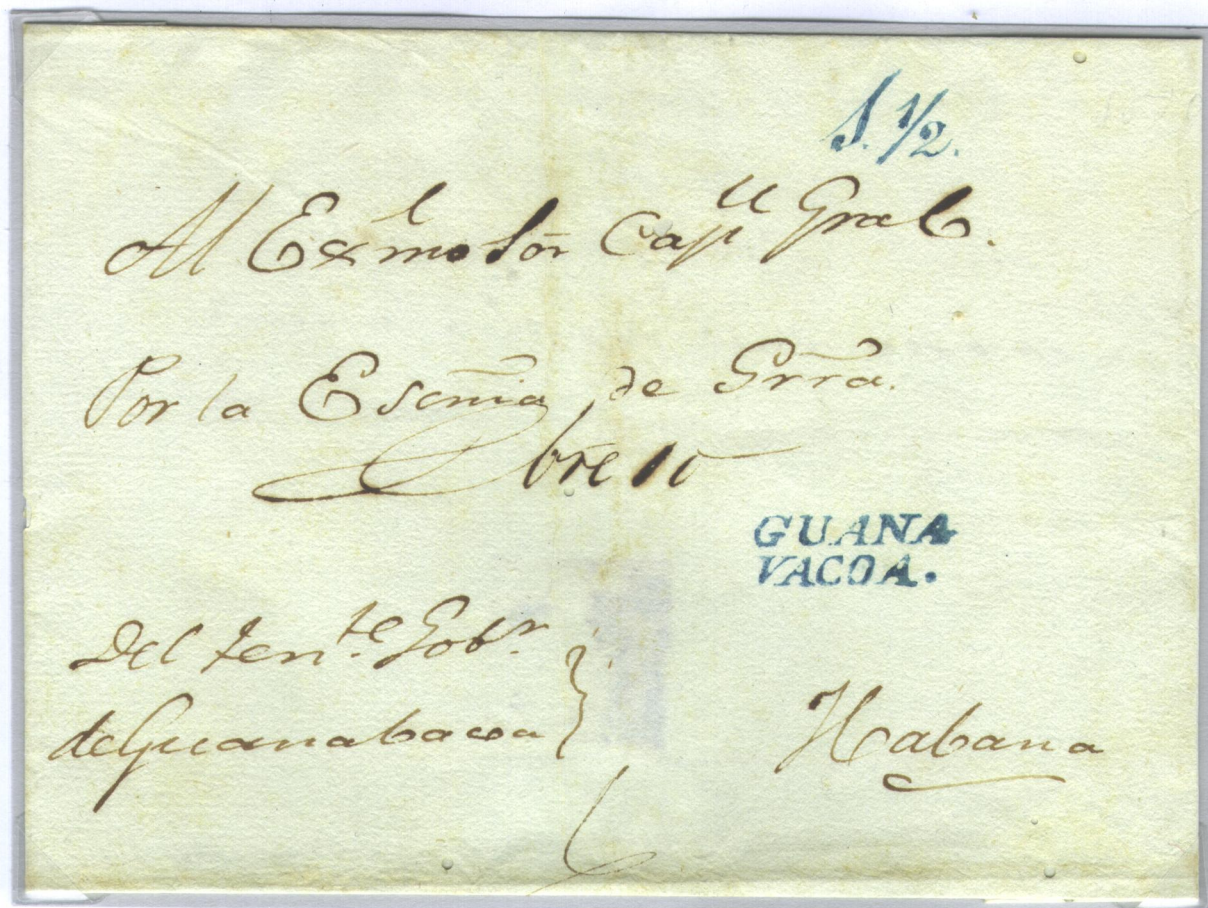 S. 1/2.
Al Exmo Sōr Capn Gral.
Por la Escnīa de Grrā.
bre 10
GUANA
VACOA.
Del tente. Gobr.
de Guanabacoa
Habana